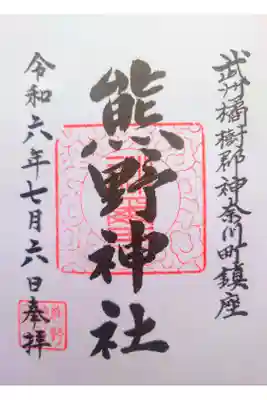 武州橘樹郡神奈川町鎮座
熊野神社
令和六年七月六日奉拝